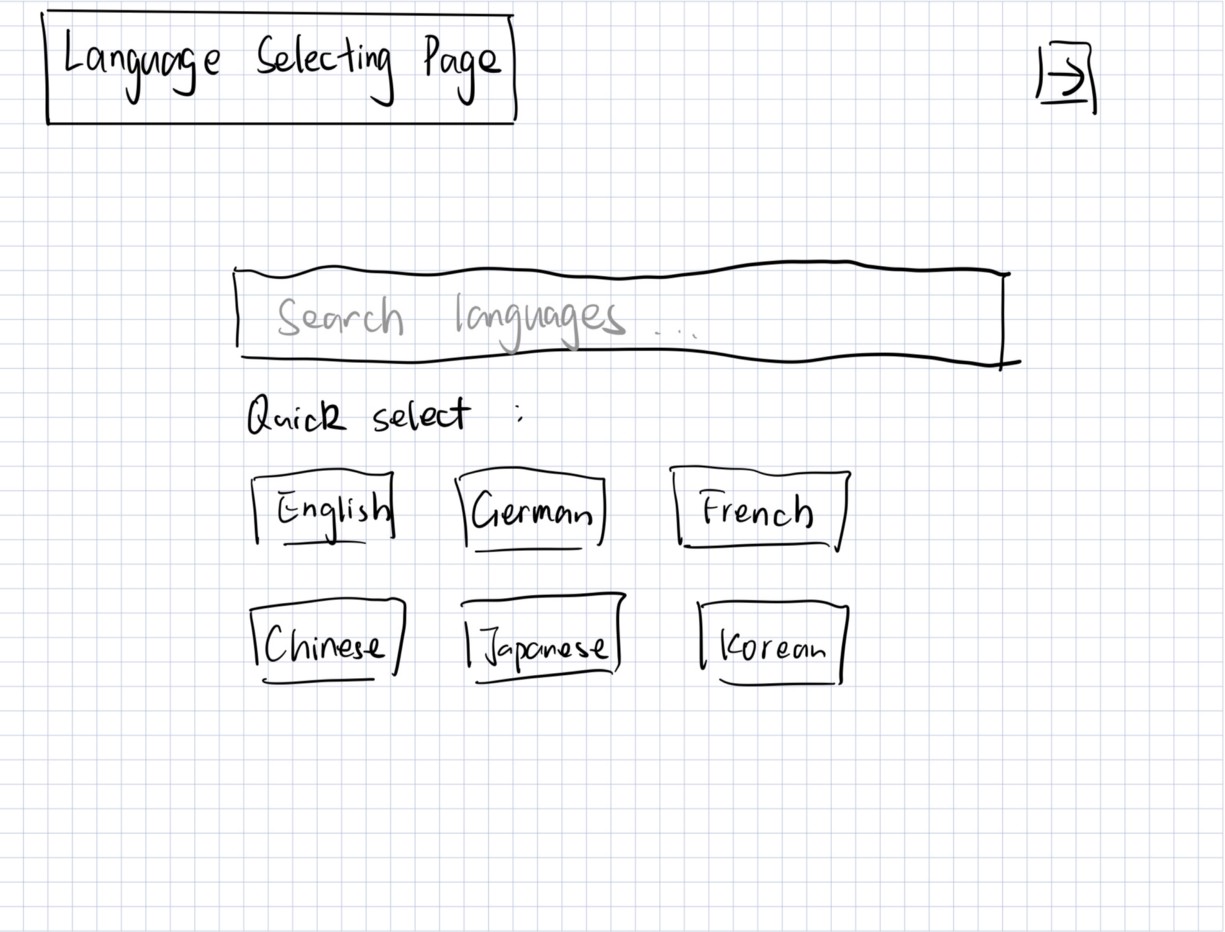 Language Selecting Page
Search languages ...
Quick select :
English German French
Chinese Japanese Korean